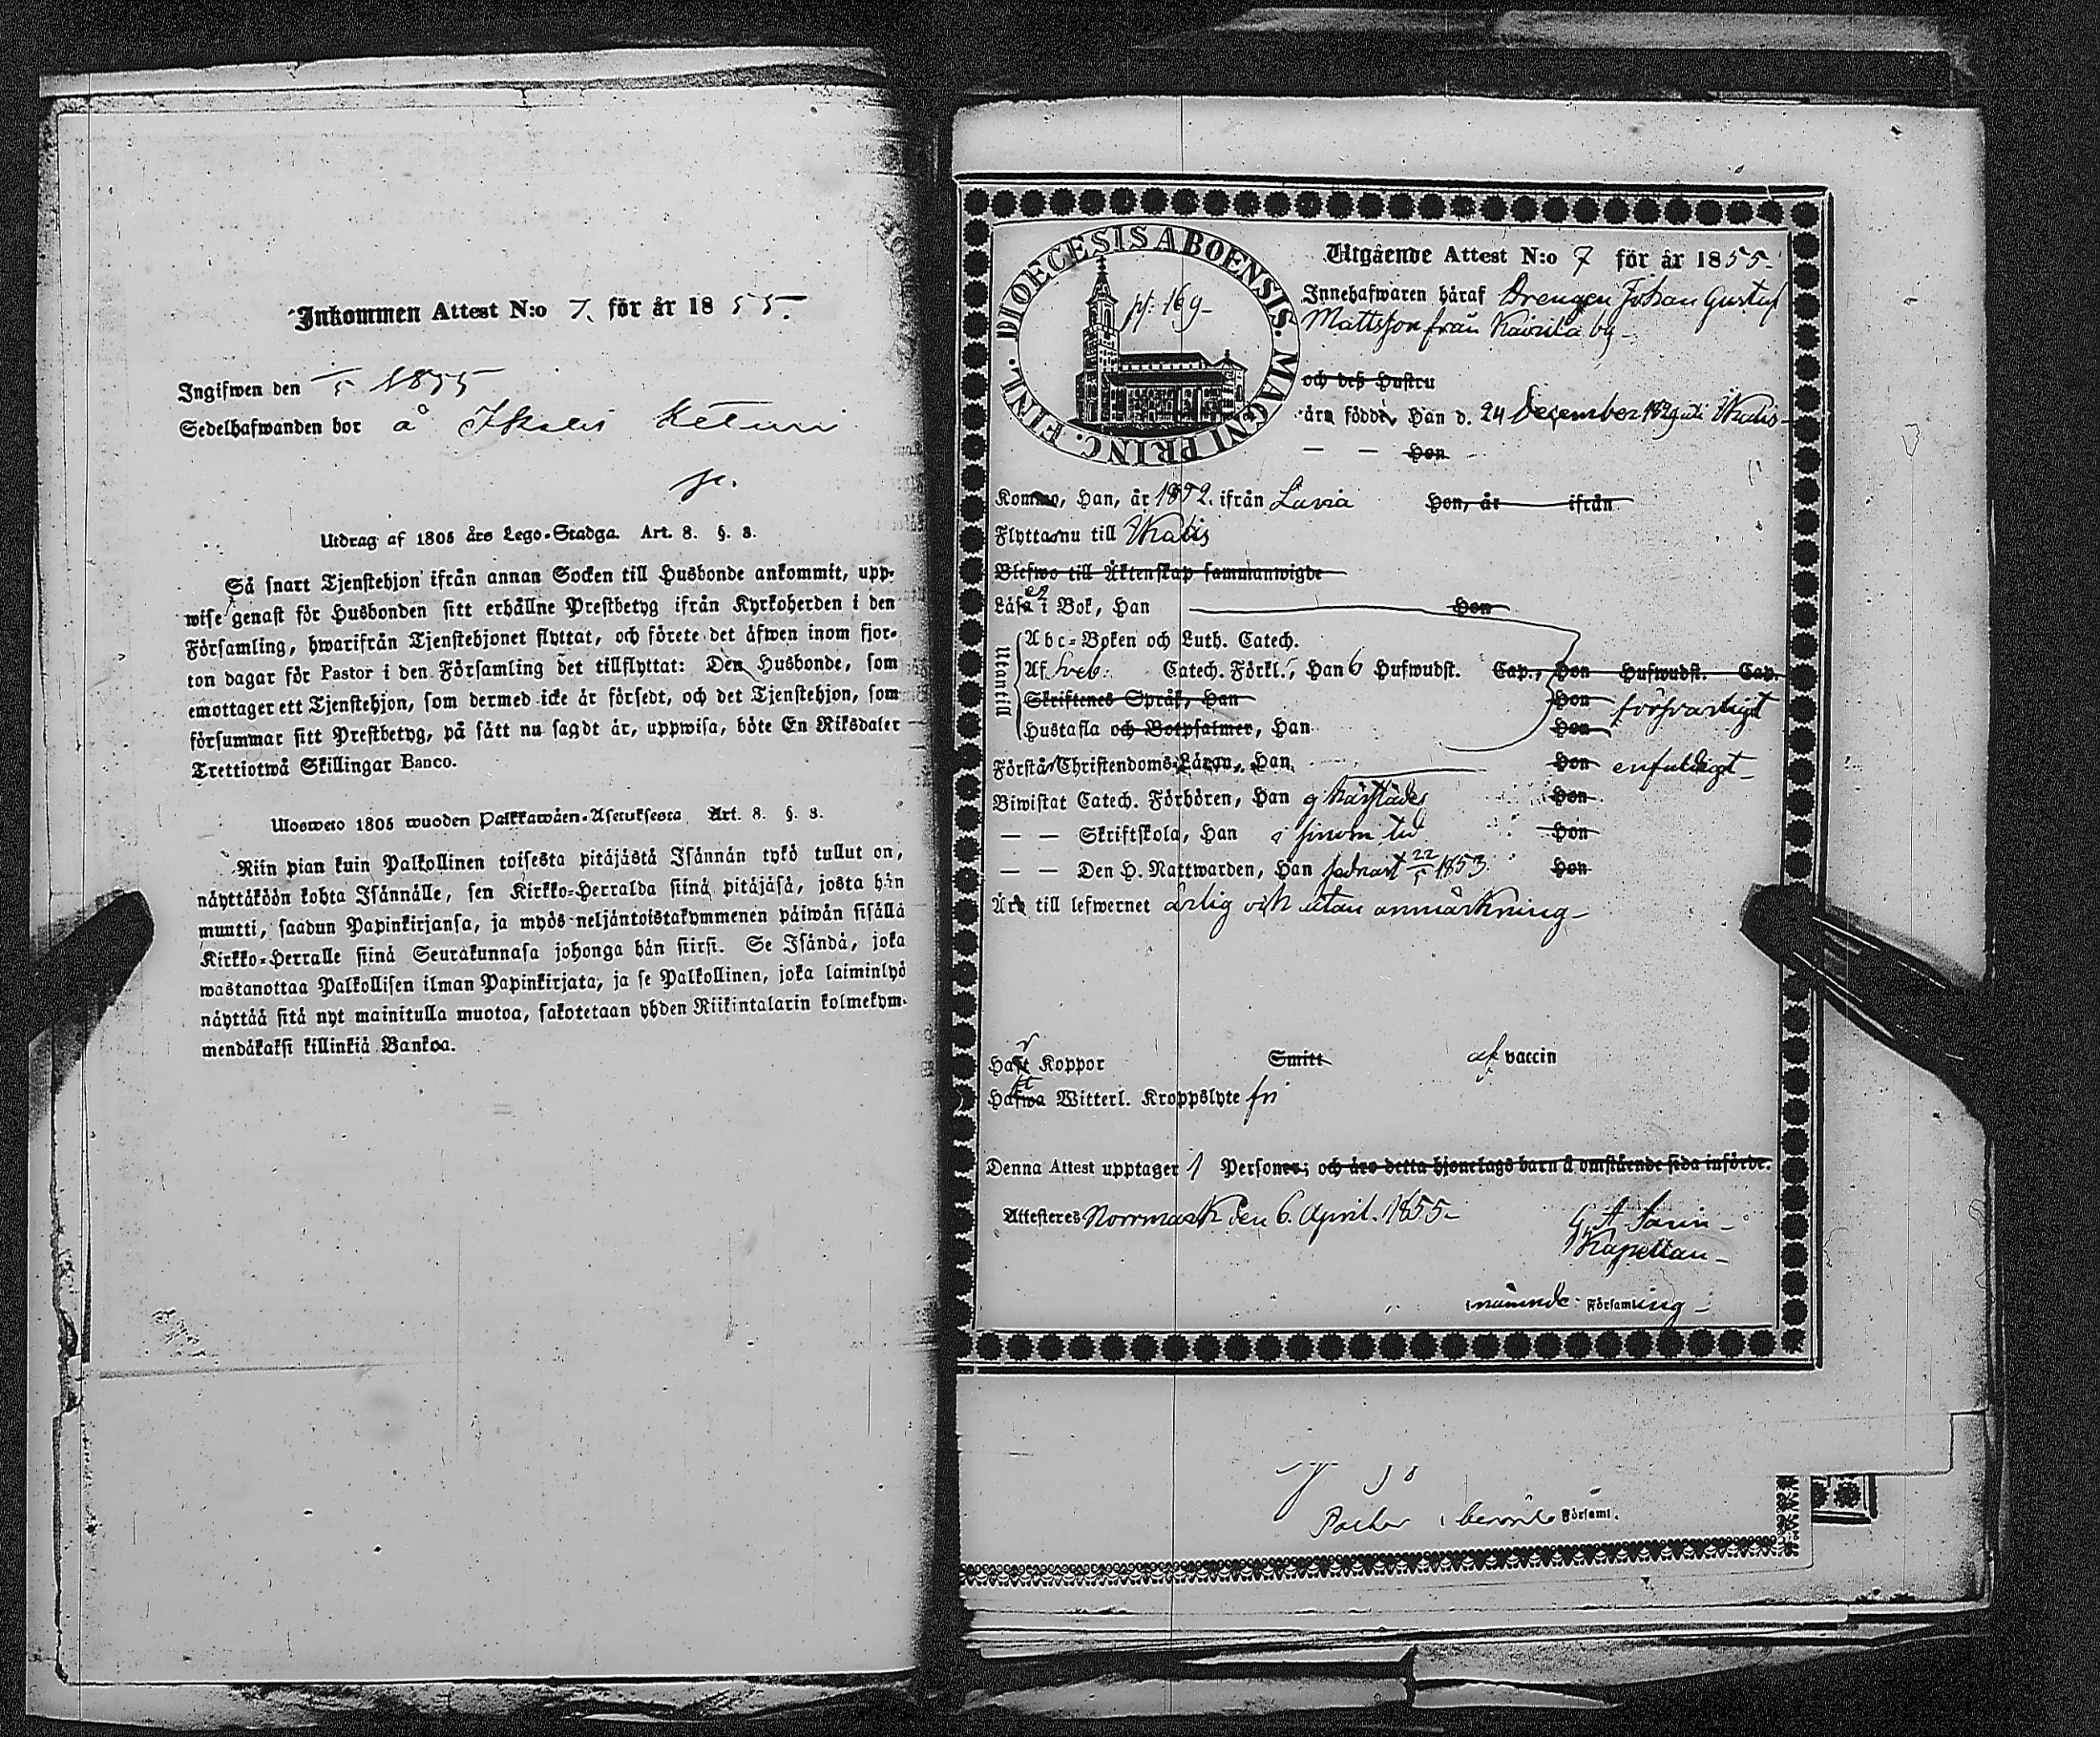 Inkommen Attest N:o 7. för år 1855.
Ingifwen den 1/5 1855
Sedelhafwanden bor å Ikalis
Utdrag af 1805 års Lego-Stadga. Art. 8. §. 3.
Så snart Tjenstehjon ifrån annan Socken till Husbonde ankommit, upp-
wise genast för Husbonden sitt erhållne Prestbetyg ifrån Kyrkoherden i den
Församling, hwarifrån Tjenstehjonet flyttat, och förete det äfwen inom fjor-
ton dagar för Pastor i den Församling det tillflyttat: Den Husbonde, som
emottager ett Tjenstehjon, som dermed icke är försedt, och det Tjenstehjon, som
försummar sitt Prestbetyg, på sätt nu sagdt är, uppwisa, böte En Riksdaler
Trettiotwå Skillingar Banco.
Ulosweto 1805 wuoden Palkkawäen-Asetuksesta Art. 8. §. 3.
Niin pian kuin Palkollinen toisesta pitäjästä Isännän tykö tullut on,
näyttäköön kohta Isännälle, sen Kirkko-Herralda siinä pitäjäsä, josta hän
muutti, saadun Papinkirjansa, ja myös neljäntoistakymmenen päiwän sisällä
Kirkko-Herralle siinä Seurakunnasa johonga hän siirsi. Se Isändä, joka
wastanottaa Palkollisen ilman Papinkirjata, ja se Palkollinen, joka laiminlyö
näyttää sitä nyt mainitulla muotoa, sakotetaan yhden Riikintalarin kolmekym-
mendäkaksi killinkiä Bankoa.
DIOECESIS ABOENSIS. MAGNI PRINC. FINL.
pf: 169
Utgående Attest N:o 7 för år 1855.
Innehafwaren häraf Drengen Johan Gustaf
Mattsson från Kairila by
och deß Hustru
äro född, Han d. 24 December 1829 uti Ikalis
— — Hon
Kommo, Han, år 1852. ifrån Luvia Hon, år ifrån
Flytta nu till Ikalis
Blefwo till Äktenskap sammanwigde
Läsa i Bok, Han Hon
Utantill
Abc-Boken och Luth. Catech.
Af Sveb: Catech. Förkl., Han 6 Hufwudst. Cap., Hon Hufwudst. Cap.
Skriftenes Språk, Han Hon försvarligt
Hustafla och Botpsalmer, Han Hon
Förstår Christendoms-Läran, Han Hon enfaldigt
Biwistat Catech. Förhören, Han ej härstädes Hon
— — Skriftskola, Han i sinom tid Hon
— — Den H. Nattwarden, Han sednast 22/5 1853. Hon
Är till lefwernet ärlig och utan anmärkning
Haft Koppor Smitt af vaccin
Hafwa Witterl. Kroppslyte fri
Denna Attest upptager 1 Personer; och äro detta hjonelags barn å omstående sida införde.
Attesteres Norrmark den 6. April. 1855
G. A. Sarin
Kapellan
i nämnde Församling
Pastor i Församl.